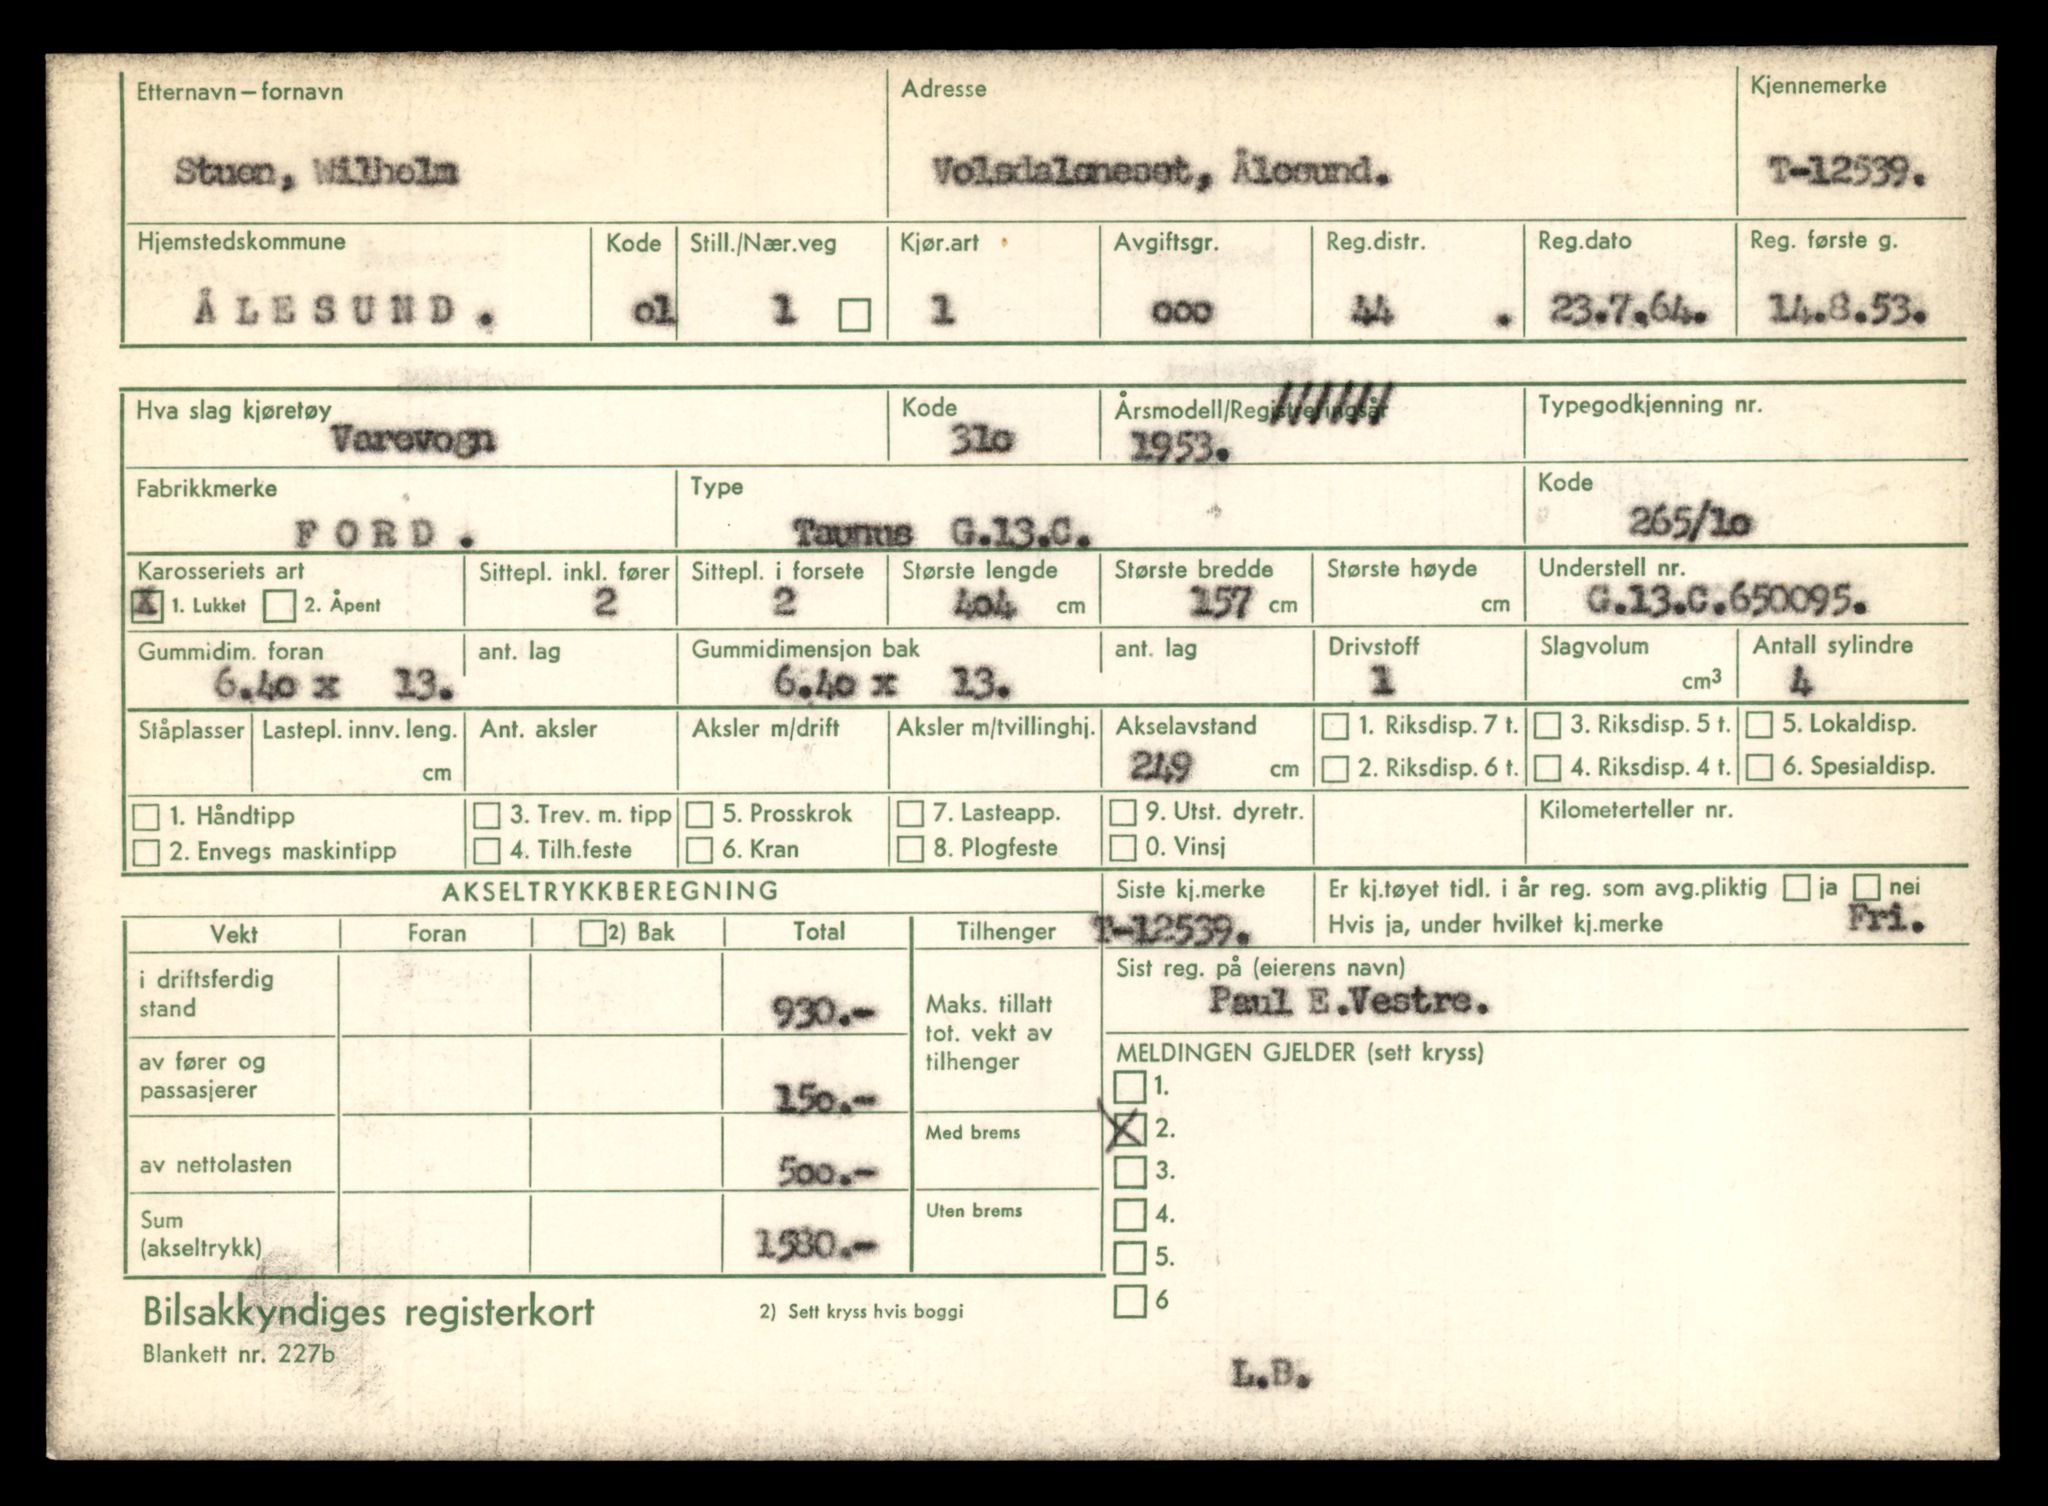 Etternavn – fornavn Adresse Kjennemerke
Stuen, Wilhelm Volsdalsneset, Ålesund. T-12539.
Hjemstedskommune Kode Still./Nær.veg Kjør.art Avgiftsgr. Reg.distr. Reg.dato Reg. første g.
ÅLESUND. o1 1 1 ooo 44 . 23.7.64. 14.8.53.
Hva slag kjøretøy Kode Årsmodell/Registreringsår Typegodkjenning nr.
Varevogn 31o 1953.
Fabrikkmerke Type Kode
FORD. Taunus G.13.C. 265/1o
Karosseriets art Sittepl. inkl. fører Sittepl. i forsete Største lengde Største bredde Største høyde Understell nr.
X 1. Lukket 2. Åpent 2 2 4o4 cm 157 cm cm G.13.C.650095.
Gummidim. foran ant. lag Gummidimensjon bak ant. lag Drivstoff Slagvolum Antall sylindre
6.4o x 13. 6.4o x 13. 1 cm3 4
Ståplasser Lastepl. innv. leng. Ant. aksler Aksler m/drift Aksler m/tvillinghj. Akselavstand 1. Riksdisp. 7 t. 3. Riksdisp. 5 t. 5. Lokaldisp.
cm 249 cm 2. Riksdisp. 6 t. 4. Riksdisp. 4 t. 6. Spesialdisp.
1. Håndtipp 3. Trev. m. tipp 5. Prosskrok 7. Lasteapp. 9. Utst. dyretr. Kilometerteller nr.
2. Envegs maskintipp 4. Tilh.feste 6. Kran 8. Plogfeste 0. Vinsj
AKSELTRYKKBEREGNING Siste kj.merke Er kj.tøyet tidl. i år reg. som avg.pliktig ja nei
Vekt Foran 2) Bak Total Tilhenger T-12539. Hvis ja, under hvilket kj.merke Fri.
i driftsferdig stand 930.- Maks. tillatt tot. vekt av tilhenger
Sist reg. på (eierens navn)
Paul E.Vestre.
av fører og passasjerer 150.-
MELDINGEN GJELDER (sett kryss)
1.
av nettolasten 500.- Med brems
X 2.
3.
Sum (akseltrykk) 1580.- Uten brems
4.
5.
6
Bilsakkyndiges registerkort 2) Sett kryss hvis boggi
Blankett nr. 227b
L.B.